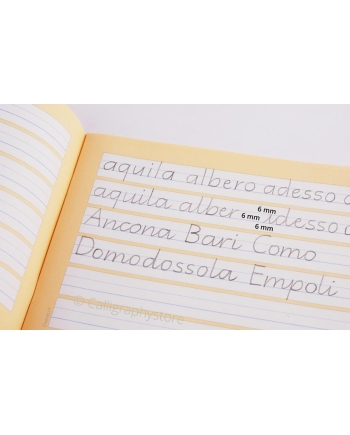 aquila albero adesso
aquila albero adesso
6 mm
6 mm
6 mm
Ancona Bari Como
Domodossola Empoli
© Calligraphystore